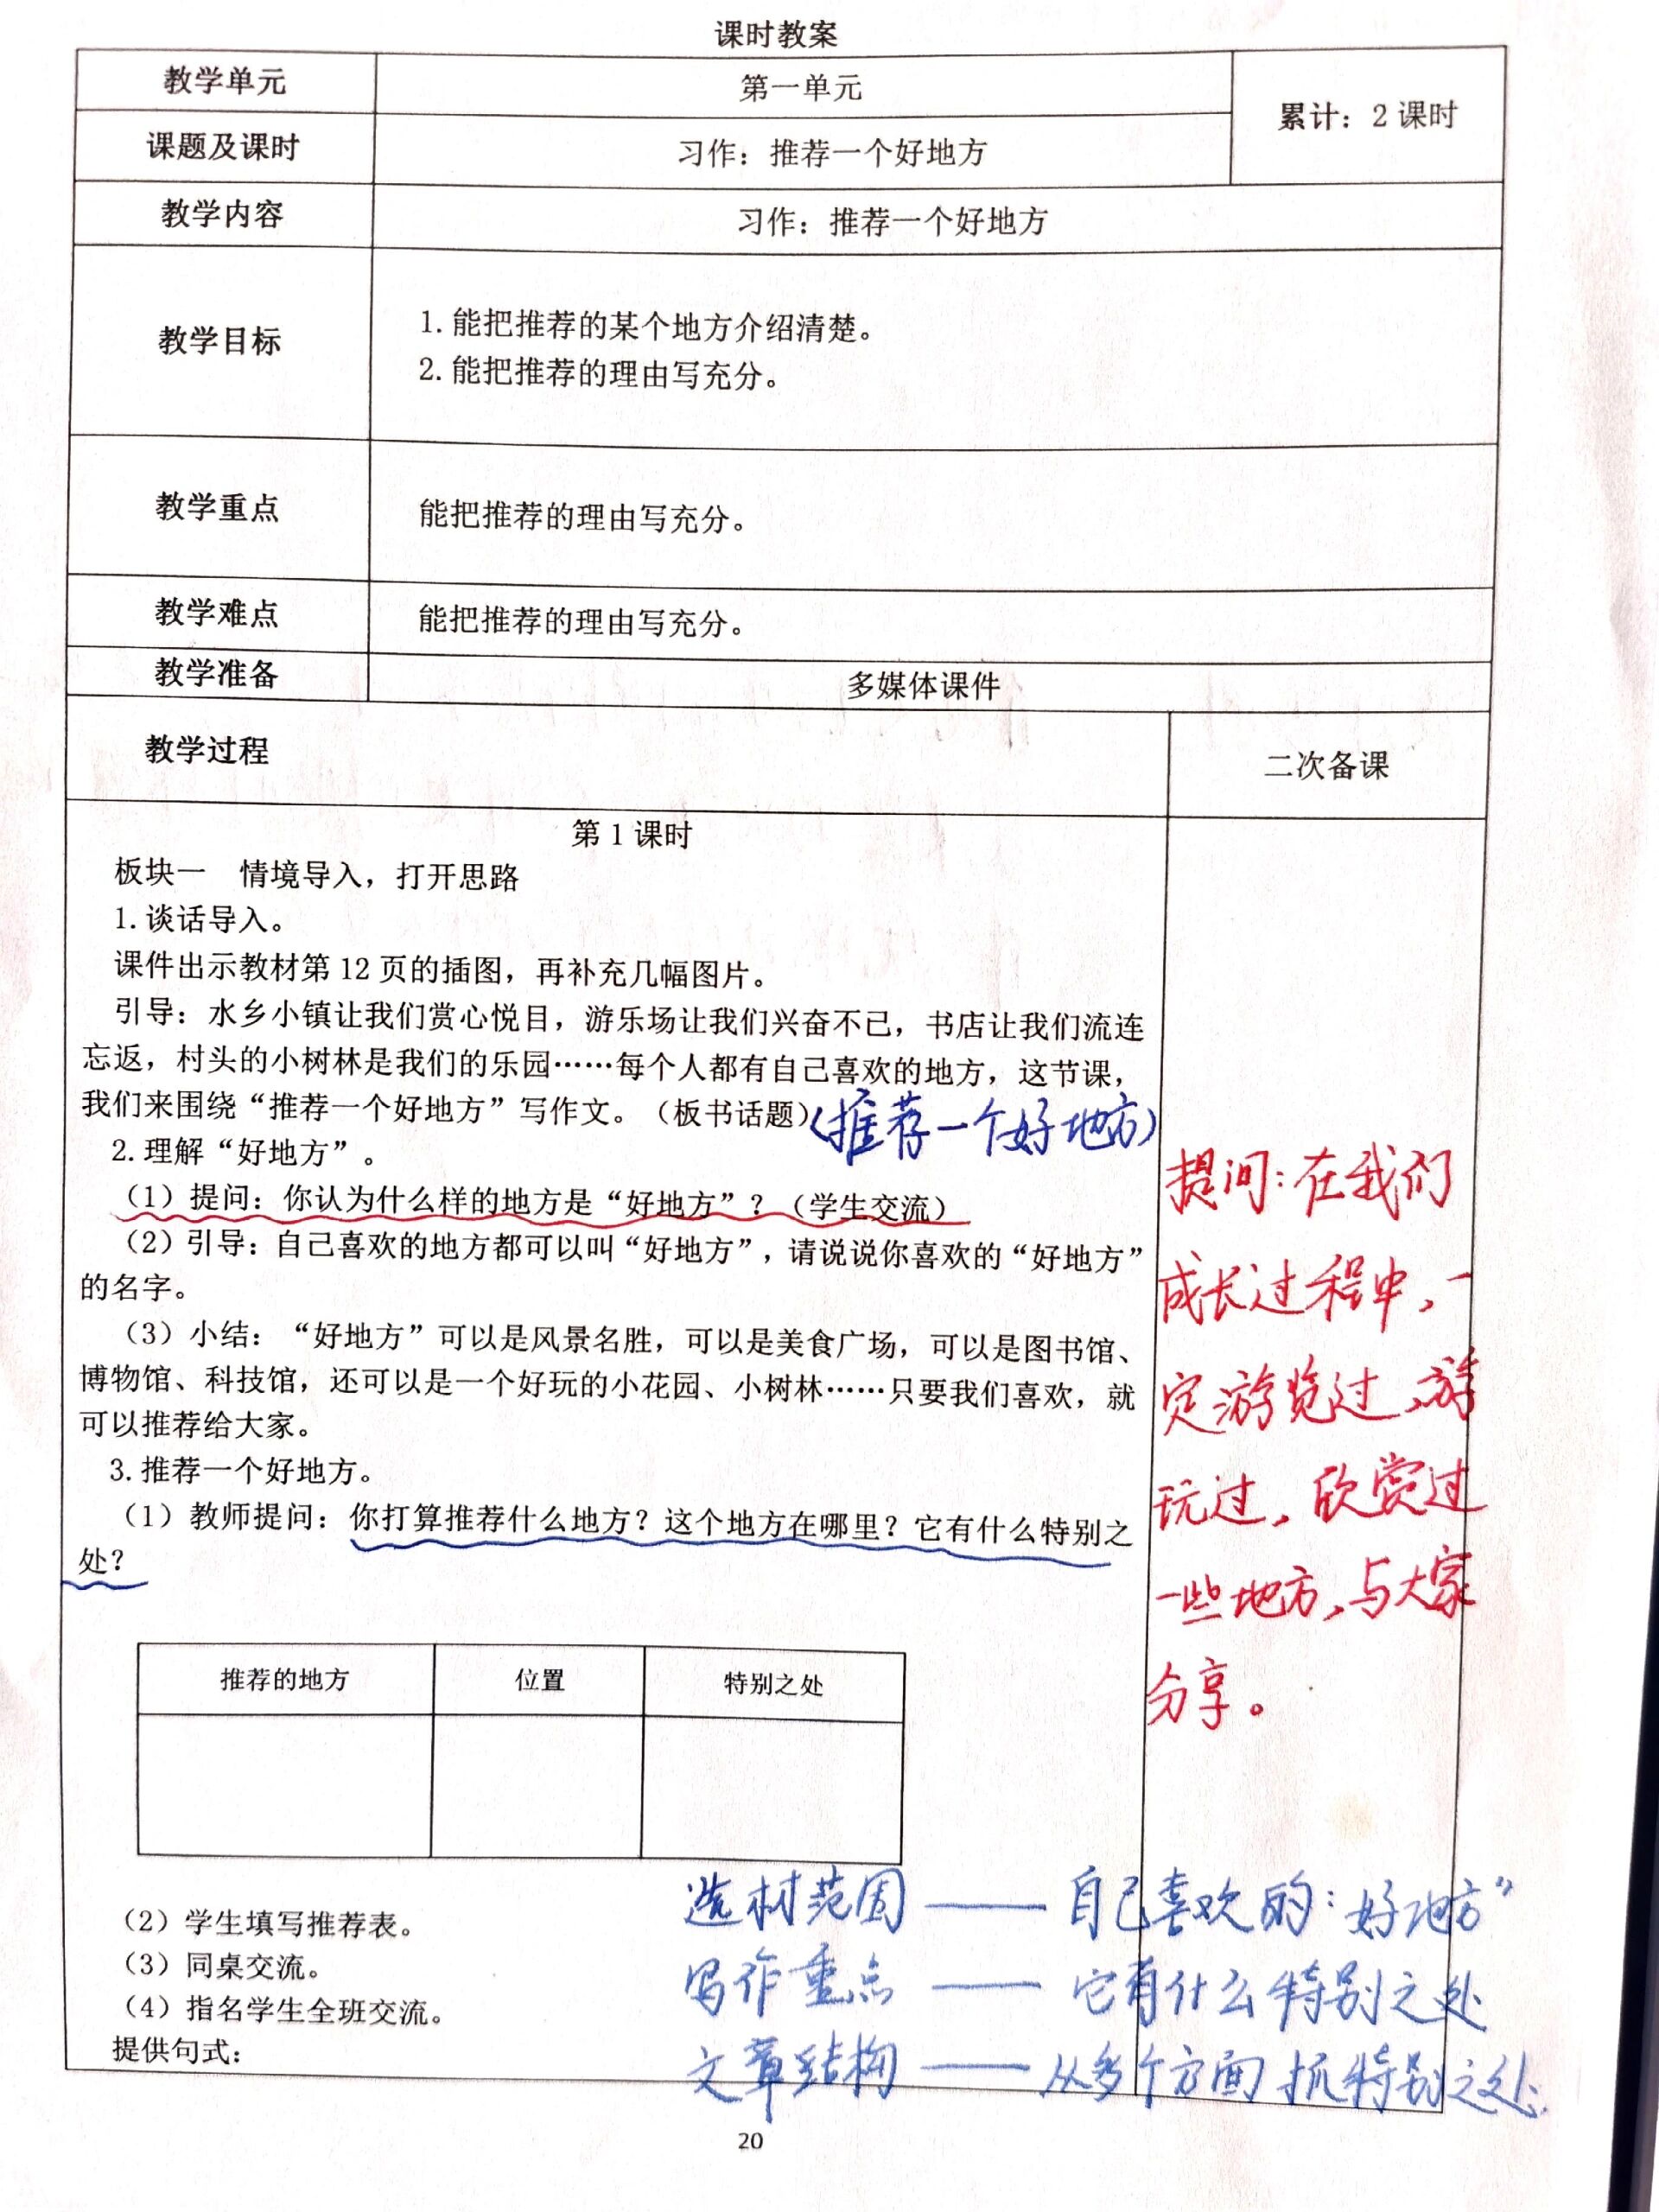 课时教案
教学单元
第一单元
累计：2 课时
课题及课时
习作：推荐一个好地方
教学内容
习作：推荐一个好地方
教学目标
1.能把推荐的某个地方介绍清楚。
2.能把推荐的理由写充分。
教学重点
能把推荐的理由写充分。
教学难点
能把推荐的理由写充分。
教学准备
多媒体课件
教学过程
二次备课
第 1 课时
板块一　情境导入，打开思路
1.谈话导入。
课件出示教材第 12 页的插图，再补充几幅图片。
引导：水乡小镇让我们赏心悦目，游乐场让我们兴奋不已，书店让我们流连
忘返，村头的小树林是我们的乐园……每个人都有自己喜欢的地方，这节课，
我们来围绕“推荐一个好地方”写作文。（板书话题）（推荐一个好地方）
2.理解“好地方”。
（1）提问：你认为什么样的地方是“好地方”？（学生交流）
（2）引导：自己喜欢的地方都可以叫“好地方”，请说说你喜欢的“好地方”
的名字。
（3）小结：“好地方”可以是风景名胜，可以是美食广场，可以是图书馆、
博物馆、科技馆，还可以是一个好玩的小花园、小树林……只要我们喜欢，就
可以推荐给大家。
3.推荐一个好地方。
（1）教师提问：你打算推荐什么地方？这个地方在哪里？它有什么特别之
处？
推荐的地方
位置
特别之处
（2）学生填写推荐表。
（3）同桌交流。
（4）指名学生全班交流。
提供句式：
提问：在我们
成长过程中，一
定游览过，游
玩过，欣赏过
一些地方，与大家
分享。
选材范围——自己喜欢的“好地方”
写作重点——它有什么特别之处
文章结构——从多个方面抓特别之处.
20